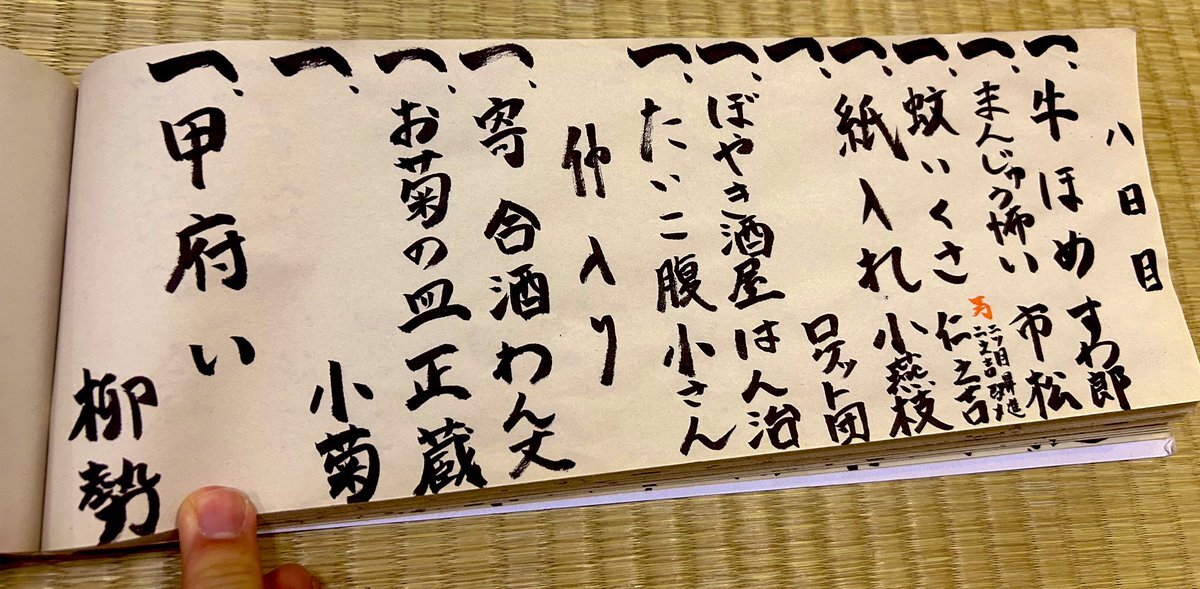 八日目
一、牛ほめ すわ郎
一、まんじゅう怖い 市松
二ツ目昇進
二之吉改メ
一、蚊いくさ 仁之吉
一、紙入れ 小燕枝
一、 ロケット団
一、ぼやき酒屋 はん治
一、たいこ腹 小さん
仲入り
一、寄合酒 わん丈
一、お菊の皿 正蔵
一、 小菊
一、甲府い 柳勢